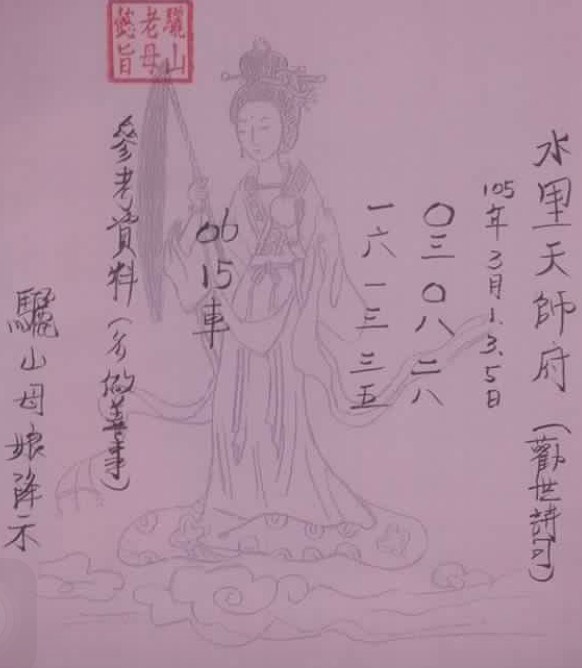 水里天師府(勸世詩句)
105年3月1.3.5日
〇三 〇八 二八
一六 一三 三五
驪山
老母
懿旨
06 15 車
參考資料(多做善事)
驪山母娘降示